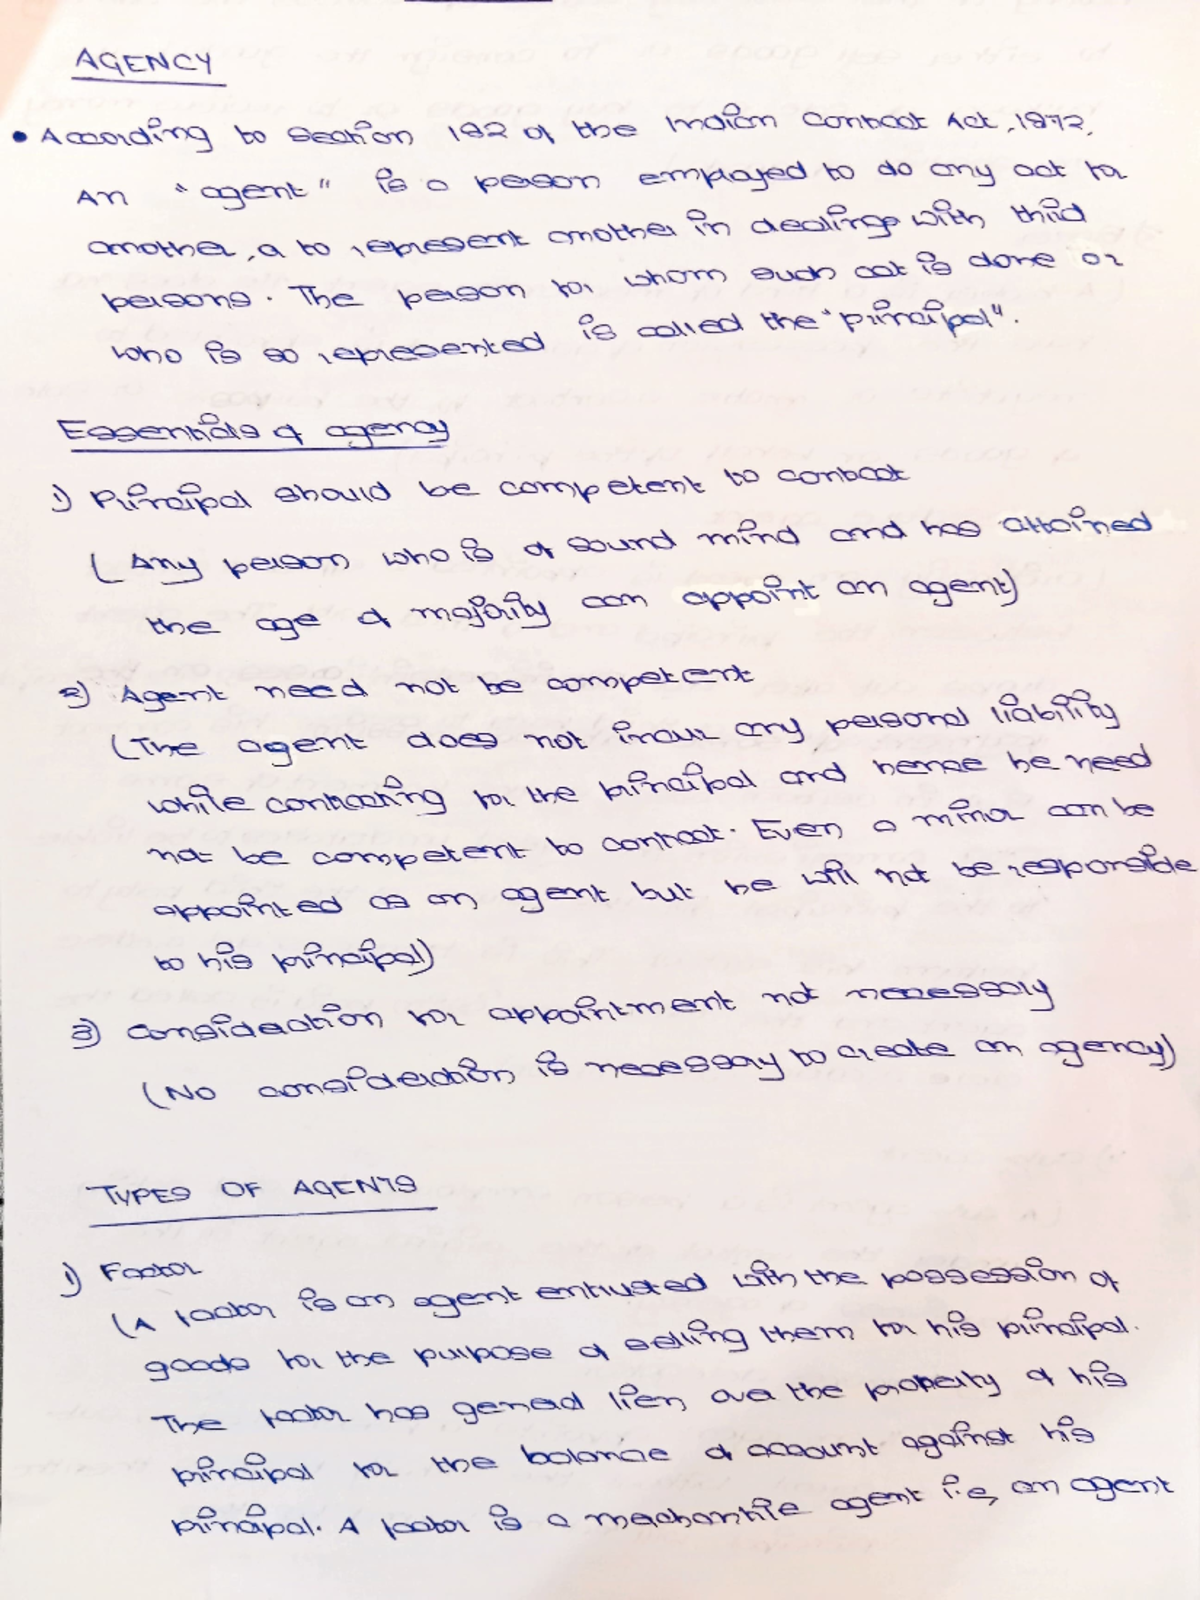 AGENCY
• According to Section 182 of the Indian Contract Act, 1872,
An "agent" is a person employed to do any act for
another, or to represent another in dealings with third
persons. The person for whom such act is done or
who is so represented is called the "principal".
Essentials of agency
1) Principal should be competent to contract
(Any person who is of sound mind and has attained
the age of majority can appoint an agent)
2) Agent need not be competent
(The agent does not incur any personal liability
while contracting for the principal and hence he need
not be competent to contract. Even a minor can be
appointed as an agent but he will not be responsible
to his principal)
3) Consideration for appointment not necessary
(No consideration is necessary to create an agency)
TYPES OF AGENTS
1) Factor
(A factor is an agent entrusted with the possession of
goods for the purpose of selling them for his principal.
The factor has general lien over the property of his
principal for the balance of account against his
principal. A factor is a mechantile agent i.e, an agent